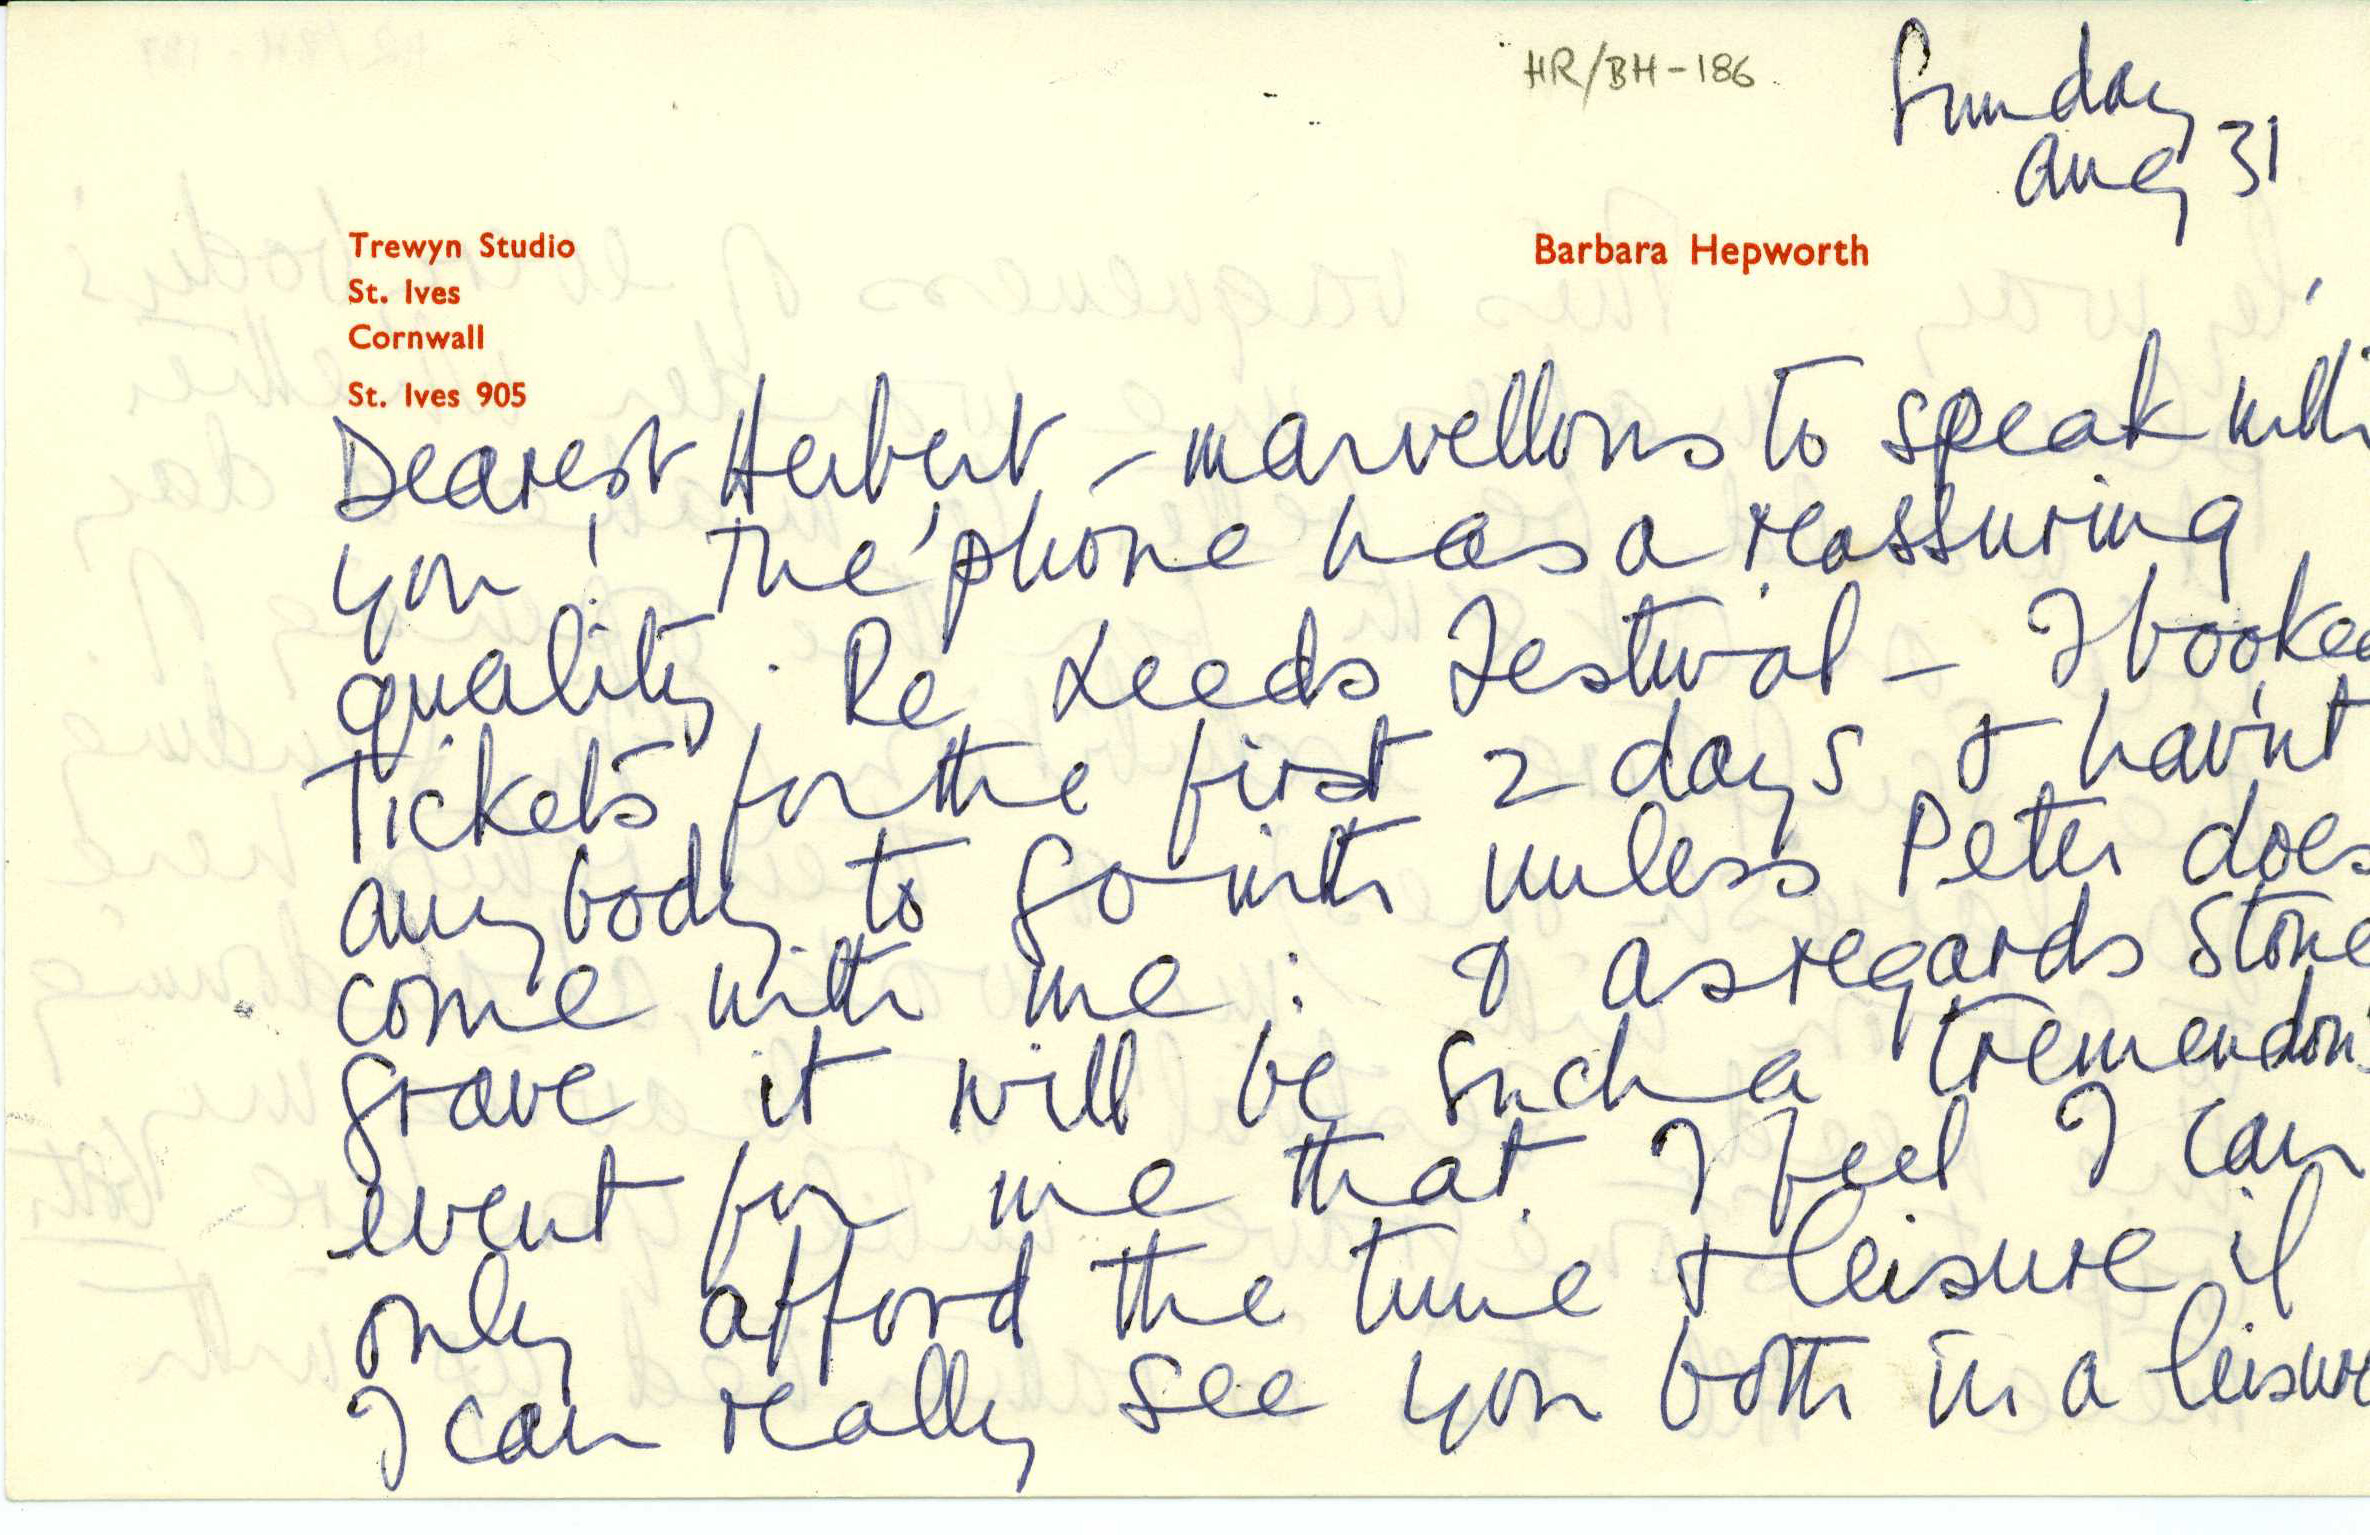 HR/BH-186
Sunday
Aug 31
Trewyn Studio
St. Ives
Cornwall
St. Ives 905
Barbara Hepworth
Dearest Herbert - marvellous to speak with
you! The 'phone has a reassuring
quality. Re Leeds Festival - I booked
Tickets for the first 2 days & hav'nt
anybody to go with unless Peter does
come with me: & as regards Stone
grave it will be such a tremendous
event for me that I feel I can
only afford the time & leisure if
I can really see you both in a leisure